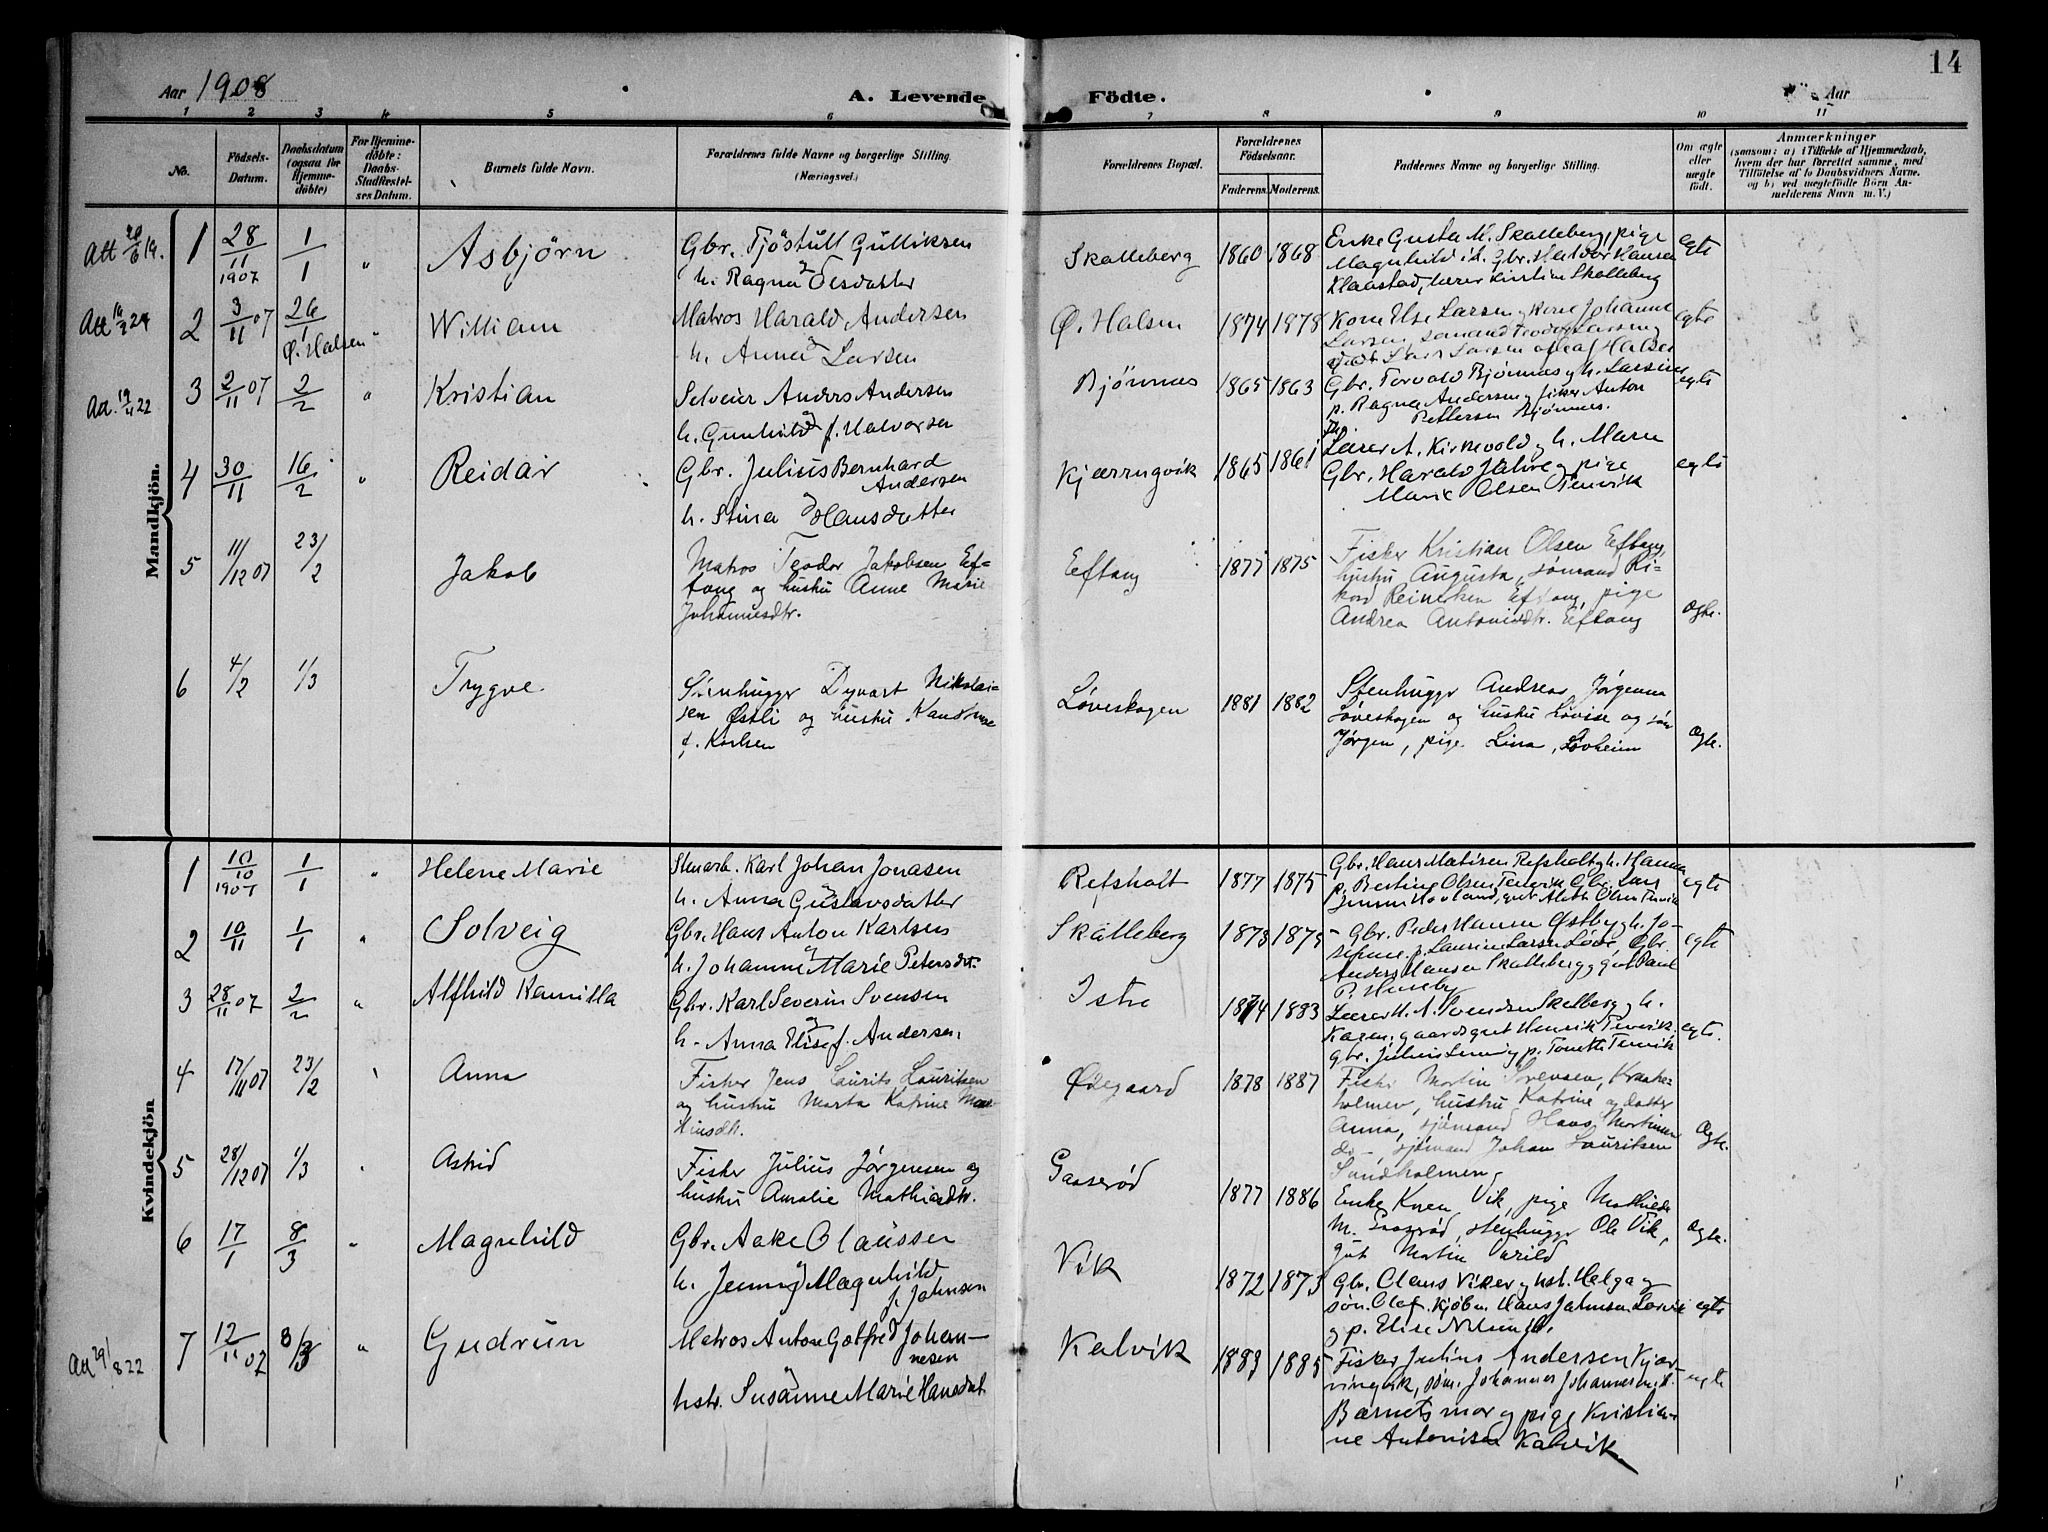 14
Aar 1908
A. Levende
Födte.
Aar
1 2 3 4 5 6 7 8 9 10 11
No.
Födsels-Datum.
Daabsdatum (ogsaa for Hjemmedöbte)
For Hjemmedöbte: Daabs-Stadfæstelses Datum.
Barnets fulde Navn.
Forældrenes fulde Navne og borgerlige Stilling.
(Næringsvei.)
Forældrenes Bopæl.
Forældrenes Födselsaar.
Faderens. Moderens.
Faddernes Navne og borgerlige Stilling.
Om ægte eller uægte födt.
Anmærkninger
(saasom: a) i Tilfælde af Hjemmedaab,
hvem der har forrettet samme, med
Tilföielse af to Daabsvidners Navne.
og b) ved uægtefödte Börn An-
mælderens Navn m. V.)
Mandkjön.
Att 20/6 19. 1 28/11 1907 1/1 " Asbjörn
Gbr. Tjöstull Gulliksen
h. Ragna Olesdatter
Skalleberg 1860 1868
Enke Gusta M. Skalleberg, pige
Magnhild Gbr. Halvor Hansen
Klaastad, lærer Kristian Skalleberg
egte
Att 24 2 3/11 07 26/1 Ø. Halsen " William
Matros Harald Andersen
h. Anna Larsen
Ø. Halsen 1874 1978
Kone Else Larsen, Kone Johanne
Larsen, sömand Teodor Larsen
Lars Larsen Halsen
egte
Att. 19/11 22 3 2/11 07 2/2 " Kristian
Selveier Anders Andersen
h. Gunhild f. Halvorsen
Bjönnes 1865 1863
Gbr. Torvald Bjönnes h. Larsine
p. Ragna Andersen fisker Anton
Pettersen Bjönnes.
egte
4 30/11 16/2 " Reidar
Gbr. Julius Bernhard
Andersen
h. Stina Hansdatter
Kjærringvik 1865 1861
Lærer A. Kirkevold h. Marie
Gbr. Harald Jahre pige
Marie Olsen Tenvik
egte
5 11/12 07 23/2 Jakob
Matros Teodor Jakobsen Ef-
tang og hustru Anne Marie
Johannesdtr.
Eftang 1877 1875
Fisker Kristian Olsen Eftang
hustru Augusta, sömand Ri-
kard Reinertsen Eftang, pige
Andrea Antonisdtr. Eftang
ægte.
6 4/2 1/3 Trygve
Stenhugger Dyvart Nikolai-
sen Østli og hustru
f. Karlsen
Løveskogen 1881 1882
Stenhugger Andreas Jørgensen
Løveskogen og hustru Lovise og søn
Jørgen, pige Lina Løvheim
ægte.
Kvindekjön
1 10/10 1907 1/1 " Helene Marie
Stenarb. Karl Johan Jonasen
h. Anna Gustavsdatter
Refsholt 1877 1875
Gbr. Hans Matisen Refsholt h. Hanna
p. Bertine Olsen Tenvik Gbr. Lars
Jensen Hovland, gut Aleth Olsen Tenvik
egte
2 10/11 1/1 " Solveig
Gbr. Hans Anton Karlsen
h. Johanne Marie Petersdtr.
Skalleberg 1873 1875
Gbr. Peder Hansen Østby h. Jo-
sefine p. Laurine Larsen Løve, Gbr.
Anders Hansen Skalleberg gut Paul
P. Huseby
egte
3 28/11 07 2/2 " Alfhild Kamilla
Gbr. Karl Severin Svensen
h. Anna Elise f. Andersen.
Istre 1874 1883
Lærer H. A. Svendsen Skelberg h.
Karen, gaardsgut Henrik Tenvik
gbr. Julius p. Tonette Tenvik
egte.
4 17/11 07 23/2 Anna
Fisker Jens Laurits Lauritsen
og hustru Marta Katrine Mar-
tinsdtr.
Ødegaard 1878 1887
Fisker Martin Sorensen, Kraake-
holmen, hustru Katrine og datter
Anna, sjömand Hans Martinsen
do -, sjömand Johan Lauritsen
Sandholmen
ægte.
5 28/12 07 1/3 Astrid
Fisker Julius Jørgensen og
hustru Amalie Mathiasdtr.
Gaaserød 1877 1886
Enke Karen Vik, pige Mathilde
M. Gaaserød, stenhugger Ole Vik,
gut Martin Varild
ægte.
6 17/1 8/3 " Magnhild
Gbr. Aake Olaussen
h. Jenny Magnhild
f. Johnsen
Vik 1872 1873
Gbr. Claus Viker hst. Helga
søn. Olef. kjøbm. Hans Johnsen Larvik
p. Elise
egte
Att 29/8 22 7 12/11 07 8/3 " Gudrun
Matros Anton Gotfred Johan-
nesen
hstr. Susanne Marie Hansdat.
Kalvik 1883 1885
Fisker Julius Andersen Kjær-
ringvik, söm. Johannes Johannesen
Barnets mor pige Kristian-
ne Antonisen Kalvik
egte